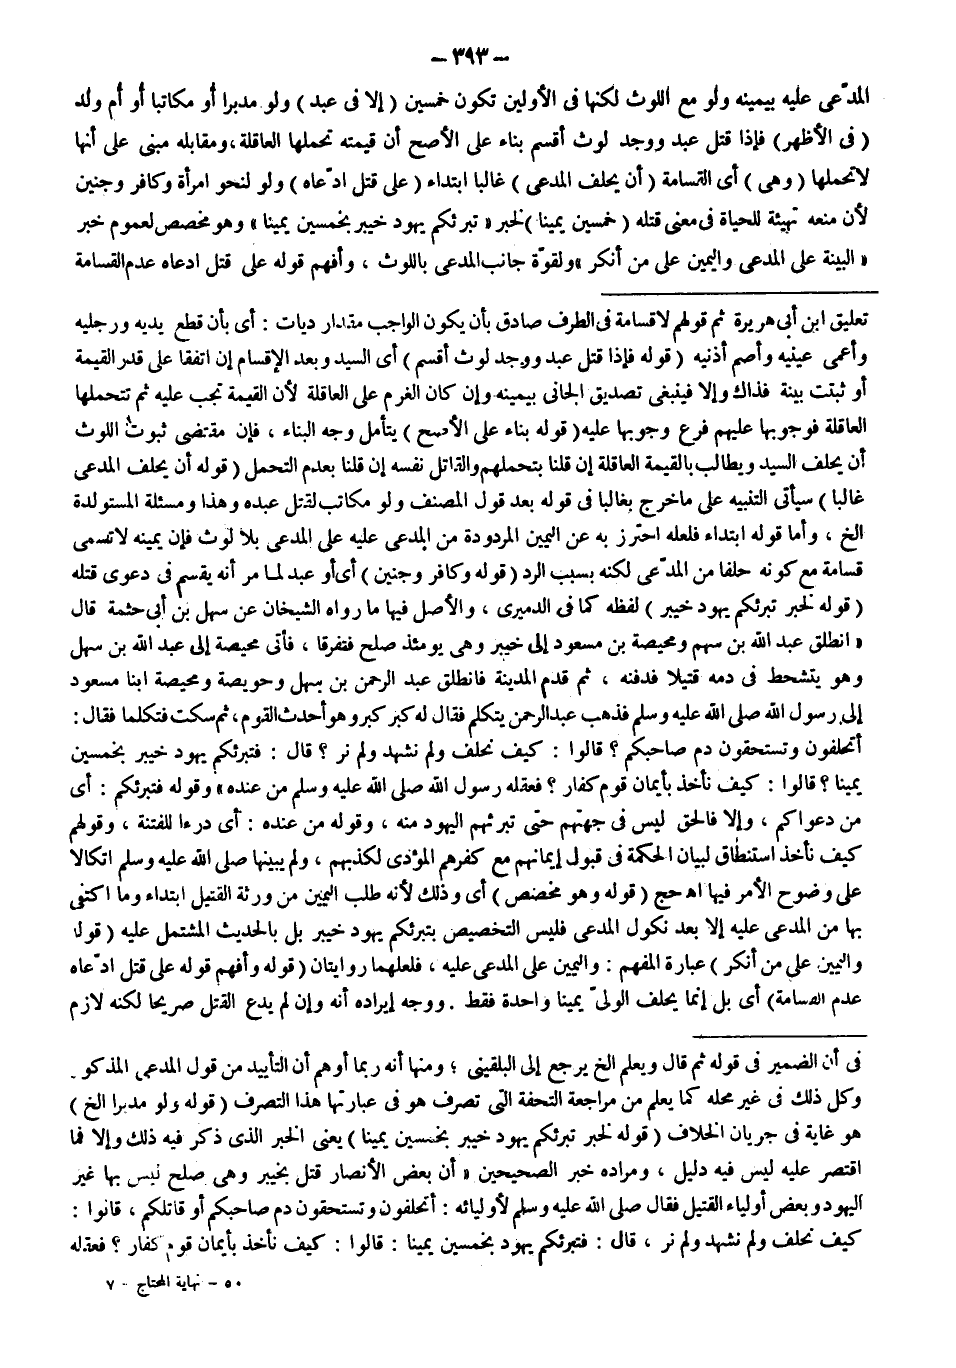 – ٣٩٣ –
المدّعى عليه بيمينه ولو مع اللوث لكنها فى الأولين تكون خمسين ( إلا فى عبد ) ولو مدبرا أو مكاتبا أو أم ولد
( فى الأظهر ) فإذا قتل عبد ووجد لوث أقسم بناء على الأصح أن قيمته تحملها العاقلة ، ومقابله مبنى على أنها
لاتحملها ( وهى ) أى القسامة ( أن يحلف المدعى ) غالبا ابتداء ( على قتل ادّعاه ) ولو لنحو امرأة وكافر وجنين
لأن منعه تهيئة للحياة فى معنى قتله ( خمسين يمينا ) لخبر « تبرئكم يهود خيبر بخمسين يمينا » وهو مخصص لعموم خبر
« البينة على المدعى واليمين على من أنكر » ولقوّة جانب المدعى باللوث ، وأفهم قوله على قتل ادعاه عدم القسامة
تعليق ابن أبى هريرة ثم قولهم لاقسامة فى الطرف صادق بأن يكون الواجب مقدار ديات : أى بأن قطع يديه ورجليه
وأعمى عينيه وأصم أذنيه ( قوله فإذا قتل عبد ووجد لوث أقسم ) أى السيد وبعد الإقسام إن اتفقا على قدر القيمة
أو ثبتت بينة فذاك وإلا فينبغى تصديق الجانى بيمينه وإن كان الغرم على العاقلة لأن القيمة تجب عليه ثم تتحملها
العاقلة فوجوبها عليهم فرع وجوبها عليه ( قوله بناء على الأصح ) يتأمل وجه البناء ، فإن مقتضى ثبوت اللوث
أن يحلف السيد ويطالب بالقيمة العاقلة إن قلنا بتحملهم والقاتل نفسه إن قلنا بعدم التحمل ( قوله أن يحلف المدعى
غالبا ) سيأتى التنبيه على ماخرج بغالبا فى قوله بعد قول المصنف ولو مكاتب لقتل عبده وهذا ومسئلة المستولدة
الخ ، وأما قوله ابتداء فلعله احترز به عن اليمين المردودة من المدعى عليه على المدعى بلا لوث فإن يمينه لاتسمى
قسامة مع كونه حلفا من المدّعى لكنه بسبب الرد ( قوله وكافر وجنين ) أى أو عبد لما مر أنه يقسم فى دعوى قتله
( قوله لخبر تبرئكم يهود خيبر ) لفظه كما فى الدميرى ، والأصل فيها ما رواه الشيخان عن سهل بن أبى حثمة قال
« انطلق عبد الله بن سهم ومحيصة بن مسعود إلى خيبر وهى يومئذ صلح فتفرقا ، فأتى محيصة إلى عبد الله بن سهل
وهو يتشحط فى دمه قتيلا فدفنه ، ثم قدم المدينة فانطلق عبد الرحمن بن سهل وحويصة ومحيصة ابنا مسعود
إلى رسول الله صلى الله عليه وسلم فذهب عبد الرحمن يتكلم فقال له كبر كبر وهو أحدث القوم ، ثم سكت فتكلما فقال :
أتحلفون وتستحقون دم صاحبكم ؟ قالوا : كيف نحلف ولم نشهد ولم نر ؟ قال : فتبرئكم يهود خيبر بخمسين
يمينا ؟ قالوا : كيف نأخذ بأيمان قوم كفار ؟ فعقله رسول الله صلى الله عليه وسلم من عنده » وقوله فتبرئكم : أى
من دعواكم ، وإلا فالحق ليس فى جهتهم حتى تبرئهم اليهود منه ، وقوله من عنده : أى درءا للفتنة ، وقولهم
كيف نأخذ استنطاق لبيان الحكمة فى قبول إيمانهم مع كفرهم المؤدى لكذبهم ، ولم يبينها صلى الله عليه وسلم اتكالا
على وضوح الأمر فيها اهـ حج ( قوله وهو مخصص ) أى وذلك لأنه طلب اليمين من ورثة القتيل ابتداء وما اكتفى
بها من المدعى عليه إلا بعد نكول المدعى فليس التخصيص بتبرئكم يهود خيبر بل بالحديث المشتمل عليه ( قوله
واليمين على من أنكر ) عبارة المفهم : واليمين على المدعى عليه ، فلعلهما روايتان ( قوله وأفهم قوله على قتل ادّعاه
عدم القسامة ) أى بل إنما يحلف الولىّ يمينا واحدة فقط . ووجه إيراده أنه وإن لم يدع القتل صريحا لكنه لازم
فى أن الضمير فى قوله ثم قال ويعلم الخ يرجع إلى البلقينى ؛ ومنها أنه ربما أوهم أن التأييد من قول المدعى المذكور
وكل ذلك فى غير محله كما يعلم من مراجعة التحفة التى تصرف هو فى عبارتها هذا التصرف ( قوله ولو مدبرا الخ )
هو غاية فى جريان الخلاف ( قوله لخبر تبرئكم يهود خيبر بخمسين يمينا ) يعنى الخبر الذى ذكر فيه ذلك وإلا فما
اقتصر عليه ليس فيه دليل ، ومراده خبر الصحيحين « أن بعض الأنصار قتل بخيبر وهى صلح ليس بها غير
اليهود وبعض أولياء القتيل فقال صلى الله عليه وسلم لأوليائه : أتحلفون وتستحقون دم صاحبكم أو قاتلكم ، قالوا :
كيف نحلف ولم نشهد ولم نر ، قال : فتبرئكم يهود بخمسين يمينا : قالوا : كيف نأخذ بأيمان قوم كفار ؟ فعقله
٥٠ – نهاية المحتاج – ٧